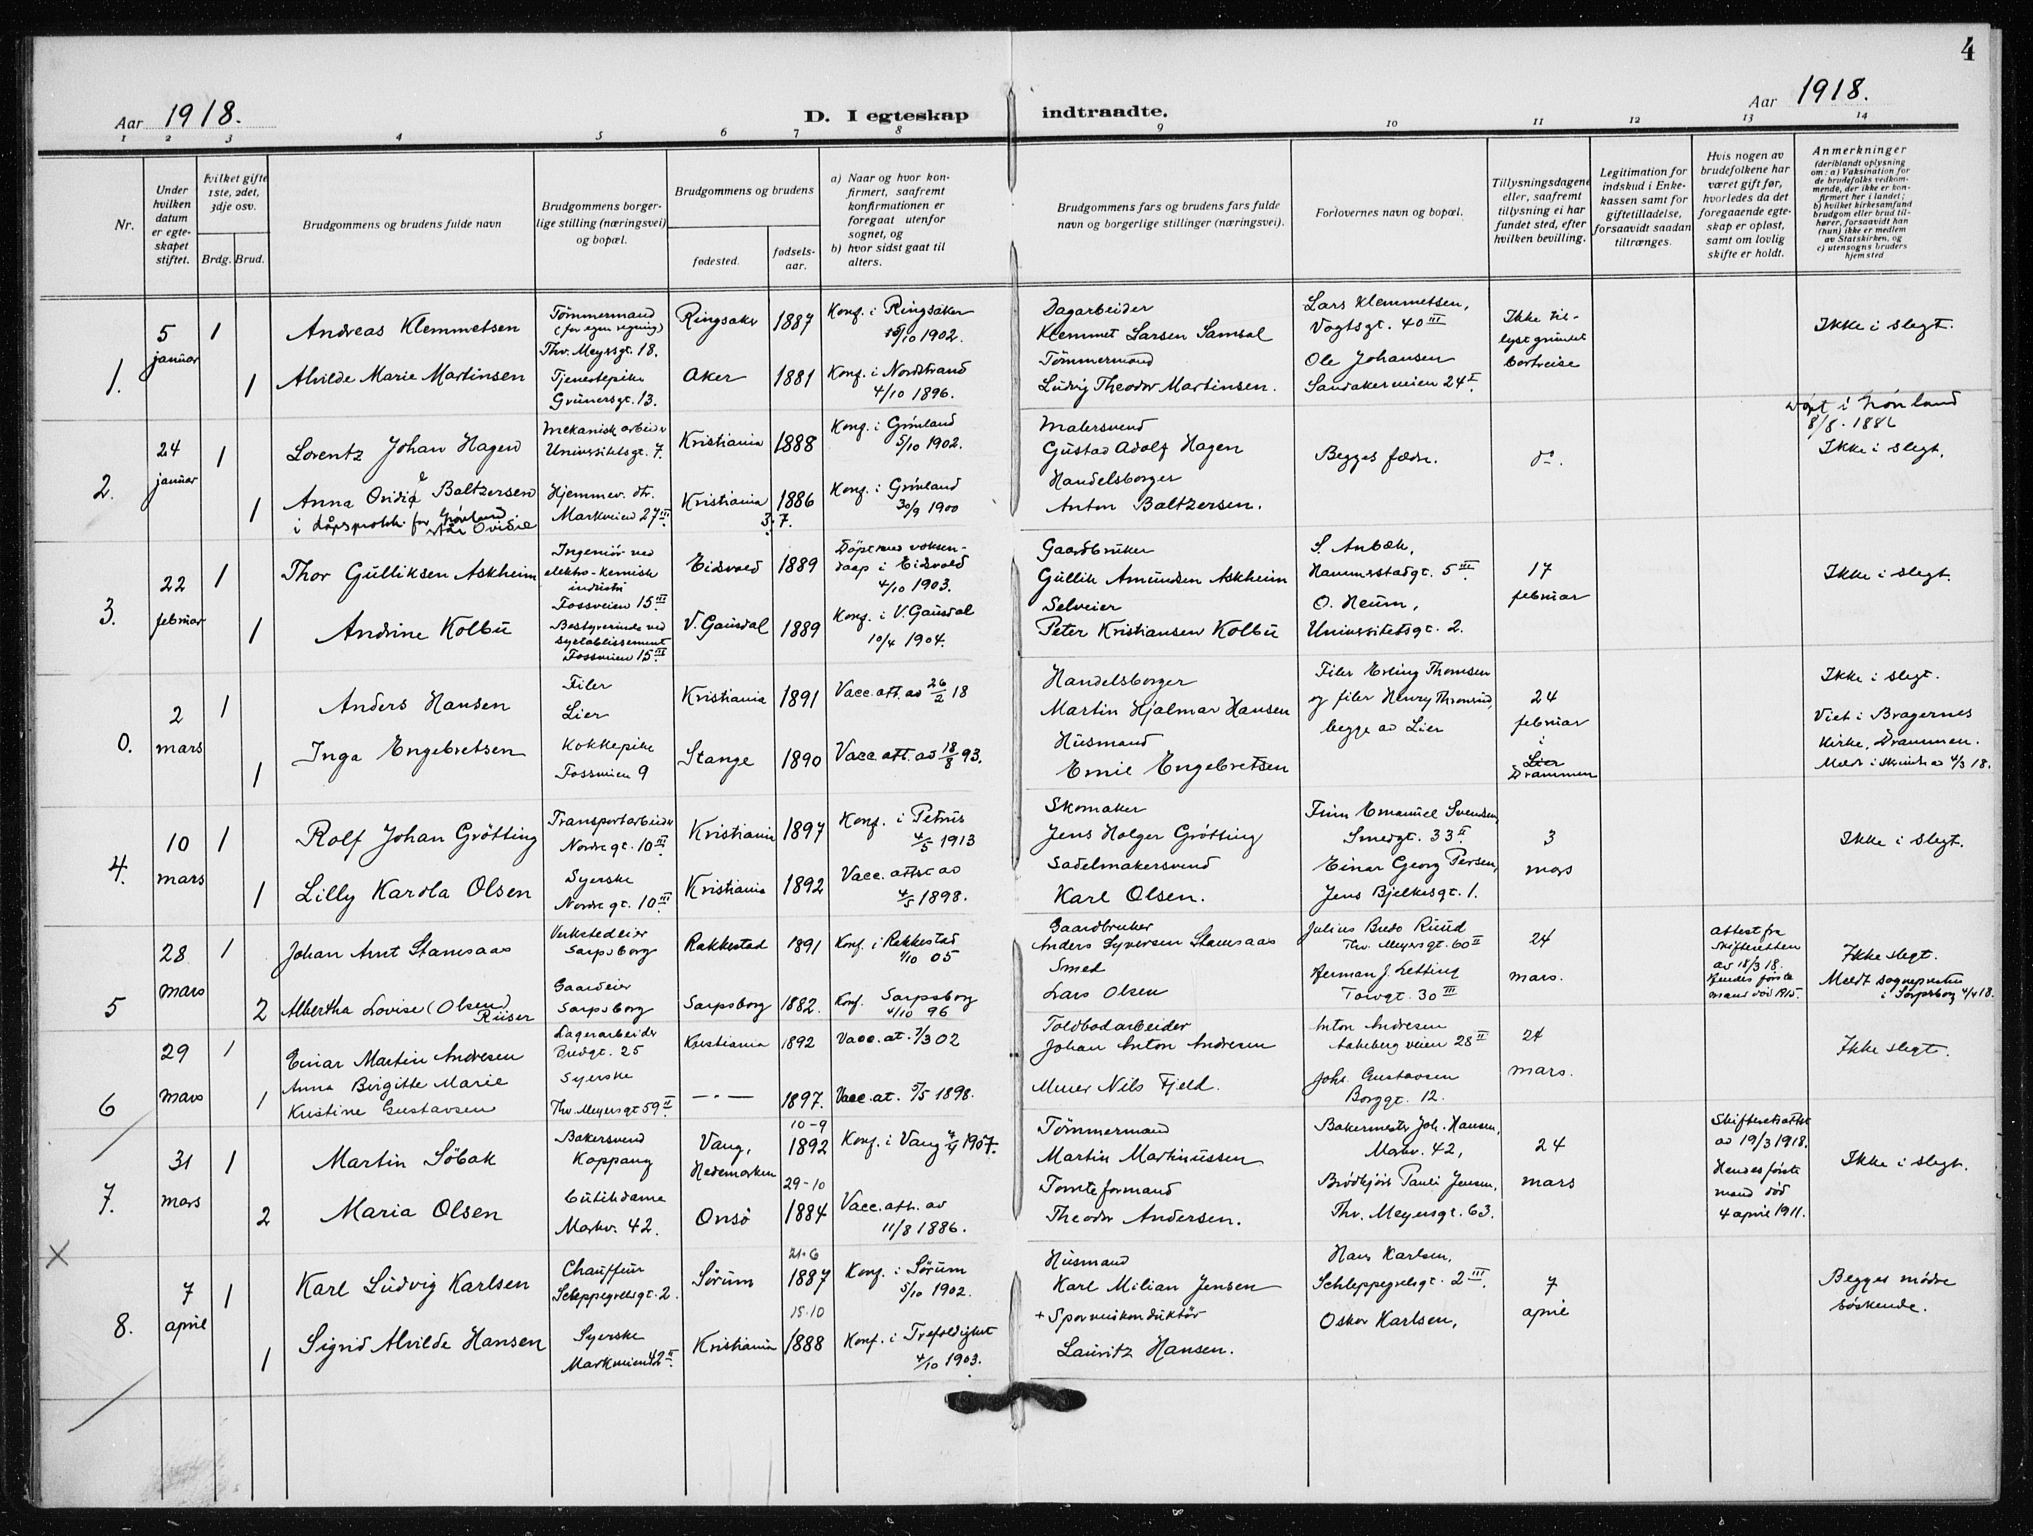 4
Aar 1918.
D. I egteskap indtraadte.
Aar 1918.
1 2 3 4 5 6 7 8 9 10 11 12 13 14
Nr.
Under hvilken datum er egteskapet stiftet.
Hvilket gifte 1ste, 2det, 3dje osv.
Brdg. Brud.
Brudgommens og brudens fulde navn
Brudgommens borgerlige stilling (næringsvei) og bopæl.
Brudgommens og brudens
fødested.
fødselsaar.
a) Naar og hvor konfirmert, saafremt konfirmationen er foregaat utenfor sognet, og
b) hvor sidst gaat til alters.
Brudgommens fars og brudens fars fulde navn og borgerlige stillinger (næringsvei).
Forlovernes navn og bopæl.
Tillysningsdagene eller, saafremt tillysning ei har fundet sted, efter hvilken bevilling.
Legitimation for indskud i Enkekassen samt for giftetilladelse, forsaavidt saadan tiltrænges.
Hvis nogen av brudefolkene har været gift før, hvorledes da det foregaaende egteskap er opløst, samt om lovlig skifte er holdt.
Anmerkninger (deriblandt oplysning om: a) Vaksination for de brudefolks vedkommende, der ikke er konfirmert her i landet; b) hvilket kirkesamfund brudgom eller brud tilhører, forsaavidt han (hun) ikke er medlem av Statskirken, og c) utensogns bruders hjemsted
1. 5 januar
1 Andreas Klemmetsen
Tømmermand (for egen regning) Thv. Meyrsgt. 18.
Ringsaker 1887
Konf. i Ringsaker 5/10 1902.
Dagarbeider
Klemmet Larsen Samsal
Lars Klemmetsen, Vogtsgt. 40 III
Ikke tillyst grundet bortreise
Ikke i slegt.
1 Alvilde Marie Martinsen
Tjenestepike Grünersgt. 13.
Aker 1881
Konf. i Nordstrand 4/10 1896.
Tømmermand
Ludvig Theodor Martinsen.
Ole Johansen
Sandakerveien 24 I
2. 24 januar
1 Lorentz Johan Hagen
Mekanisk arbeider Universitetsgt. 7.
Kristiania 1888
Konf. i Grønland 5/10 1902.
Malersvend
Gustad Adolf Hagen
Begges fædre.
do.
Døpt i Grønland 8/8. 1886
Ikke i slegt.
1 Anna Ovidia e Baltzersen
i dåpsprotok. for Grønland står Ovidie
Hjemmev. dtr. Markveien 27 III
Kristiania 1886 3/7.
Konf. i Grønland 30/9 1900
Handelsborger
Anton Baltzersen.
3. 22 februar
1 Thor Gulliksen Askheim
Ingeniør ved elektro-kemisk industri Fossveien 15 III
Eidsvold 1889
Døpt med voksendaap i Eidsvold 4/10 1903.
Gaardbruker
Gullik Amundsen Askheim
S. Anbæk, Hammerstadgt. 5 III
17 februar
Ikke i slegt.
1 Andrine Kolbu
Bestyrerinde ved syetablissement Fossveien 15 III
V. Gausdal 1889
Konf. i V. Gausdal 10/4 1904.
Selveier
Peter Kristiansen Kolbu
O. Heum, Universitetsgt. 2.
0. 2 mars
1 Anders Hansen
Filer Lier
Kristiania 1891
Vacc. att. av 26/2 18
Handelsborger
Martin Hjalmar Hansen
Filer Erling Thomsen og filer Henry Thronrud, begge av Lier
24 februar i Lier Drammen
Ikke i slegt.
Viet i Bragernes Kirke, Drammen.
Meldt i skrivelse 4/3 18.
1 Inga Engebretsen
Kokkepike Fossveien 9
Stange 1890
Vacc. att. av 18/8 93.
Husmand
Emil Engebretsen
4. 10 mars
1 Rolf Johan Grötting
Transportarbeider Nordre gt. 10 III
Kristiania 1897
Konf. i Petrus 4/5 1913
Skomaker
Jens Holger Grötting
Finn Emanuel Svendsen, Smedgt. 33 II
3 mars
Ikke i slegt.
1 Lilly Karola Olsen
Syerske Nordre gt. 10 III
Kristiania 1892
Vacc. attst av 4/5 1898.
Sadelmakersvend
Karl Olsen.
Einar Georg Persen, Jens Bjelkesgt. 1.
5 28 mars
1 Johan Arnt Stamsaas
Verkstedeier Sarpsborg
Rakkestad 1891
Konf. i Rakkestad 1/10 05
Gaardbruker
Anders Syversen Stamsaas
Julius Bredo Ruud Thv. Meyersgt. 60 II
24 mars.
Attest fra skifteretten av 18/3 18.
Hendes første mand död 1915.
Ikke slegt.
Meldt sognepresten i Sarpsborg 4/4 18.
2 Albertha Lovise (Olsen) Riiser
Gaardeier Sarpsborg
Sarpsborg 1882.
Konf. Sarpsborg 4/10 96
Smed
Lars Olsen
Herman J. Letting Torvgt. 30 III
6 29 mars
1 Einar Martin Andresen
Lagerarbeider Bredgt. 25
Kristiania 1892
Vacc. at. 7/3 02
Toldbodarbeider
Johan Anton Andresen
Anton Andresen Aakebergveien 28 II
24 mars.
Ikke slegt.
1 Anna Birgitte Marie Kristine Gustavsen
Syerske Thv. Meyersgt 59 II
— " — 1897.
Vacc. at. 5/5 1898.
Murer Nils Fjeld.
Johs. Gustavsen Borggt. 12.
7. 31 mars
1 Martin Söbak
Bakersvend Koppang
Vang, Hedemarken 10-9 1892
Konf. i Vang 7/4 1907.
Tømmermand
Martin Martinussen
Bakermester Joh. Hansen, Markv. 42,
24 mars
Skifteretsattst av 19/3 1918.
Hendes første mand død 4 april 1911.
Ikke i slegt.
2 Maria Olsen
Butikdame Markv. 42.
Onsö 29-10 1884
Vacc. att. av 11/8 1886.
Tomteformand
Theodor Andersen.
Brödkjör. Pauli Jensen, Thv. Meyersgt. 63.
X
8. 7 april
1 Karl Ludvig Karlsen
Chauffeur Schleppegrelsgt. 2.
Sørum 21-6 1887
Konf. i Sørum 5/10 1902.
Husmand
Karl Milian Jensen
Hans Karlsen, Schleppegrelsgt. 2 III
7 april
Begges mödre söskende.
1 Sigrid Alvilde Hansen
Syerske Markveien 42 II
Kristiania 15-10 1888
Konf. i Trefoldighet 4/10 1903.
+ Sporveiskonduktör
Lauritz Hansen.
Oskar Karlsen,